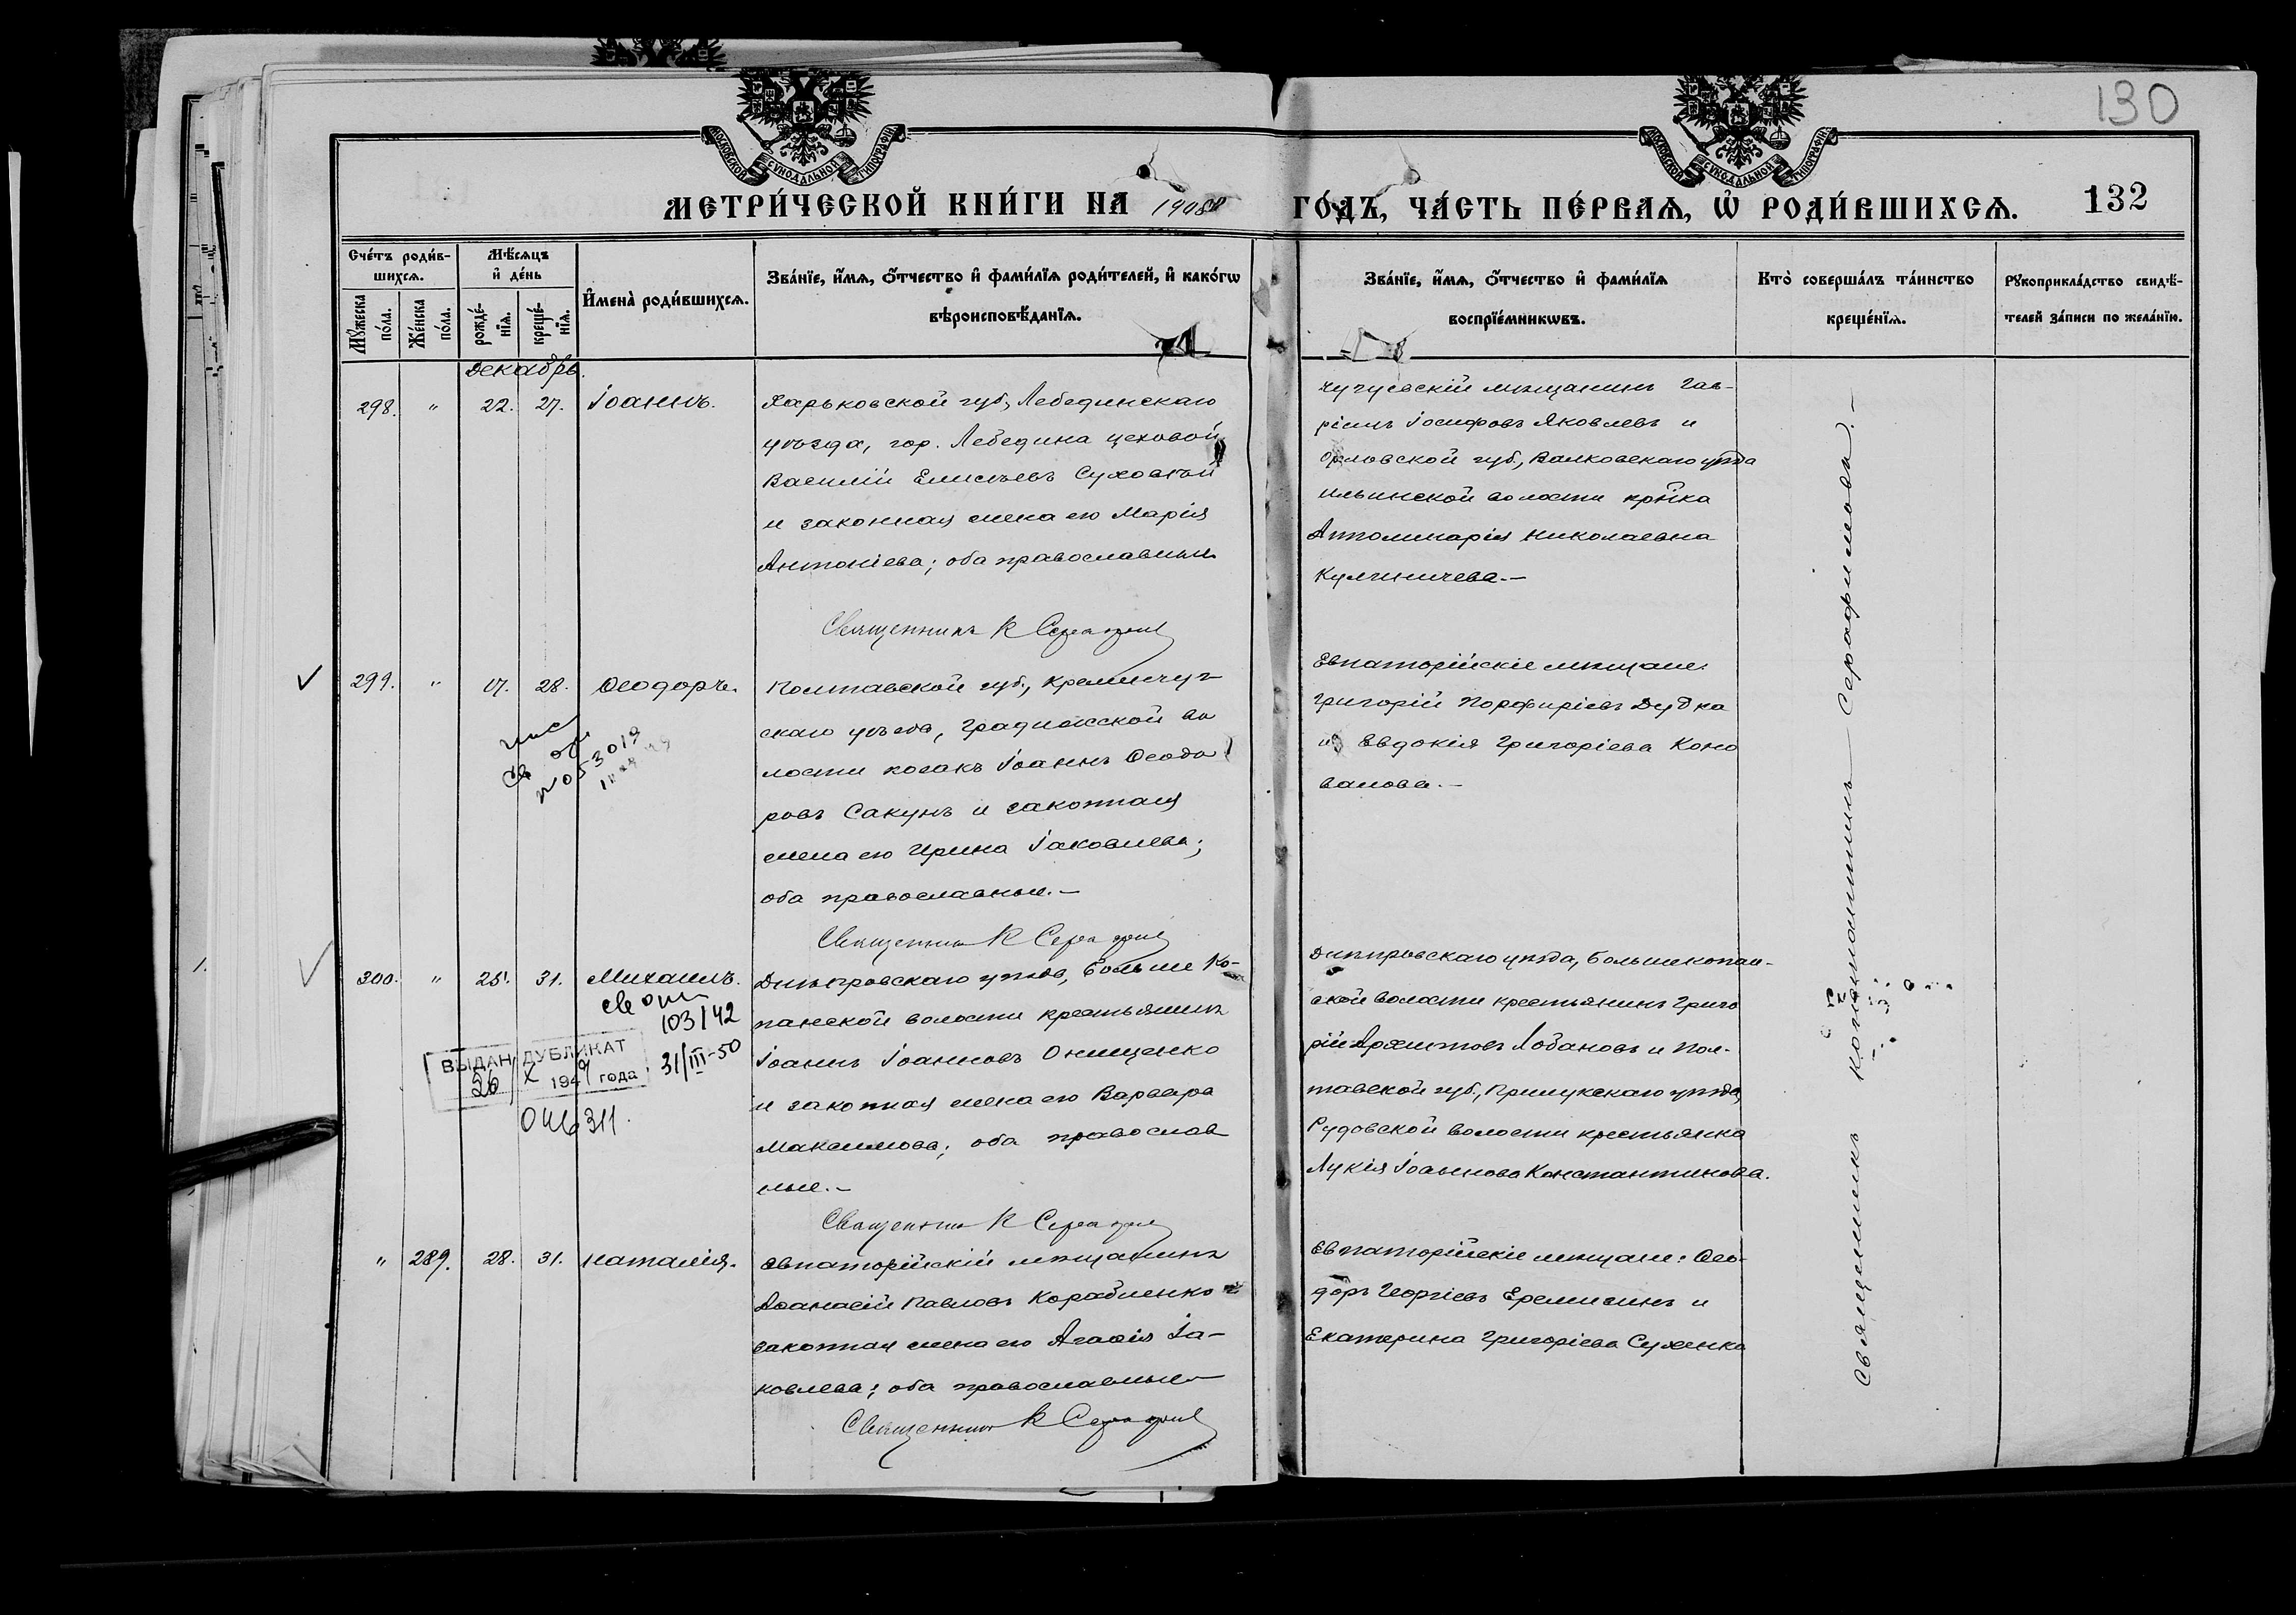 130
МОСКОВСКОЙ СѴНОДАЛЬНОЙ ТИПОГРАФІИ
МОСКОВСКОЙ СѴНОДАЛЬНОЙ ТИПОГРАФІИ
МЕТРИ́ЧЕСКОЙ КНИ́ГИ НА 1908й ГО́ДЪ, ЧА́СТЬ ПЕ́РВАѦ, Ѡ҆ РОДИ́ВШИХСѦ. 132
Сче́тъ роди́в-
шихсѧ.
Мꙋ́жеска по́ла.
Же́нска по́ла.
Мѣ́сѧцъ
и҆ де́нь
рожде́-
нїѧ.
креще́-
нїѧ.
И҆мена̀ роди́вшихсѧ.
Зва́нїе, и҆́мѧ, ѻ҆́тчество и҆ фами́лїѧ роди́телей, и҆ како́гѡ
вѣроисповѣ́данїѧ.
Зва́нїе, и҆́мѧ, ѻ҆́тчество и҆ фами́лїѧ
воспрїе́мникѡвъ.
Кто̀ соверша́лъ та́инство
креще́нїѧ.
Рꙋкоприкла́дство свидѣ́-
телей за́писи по жела́нїю.
Декабрь.
298. " 22. 27. Іоаннъ.
Харьковской губ., Лебединскаго
уѣзда, гор. Лебедина цеховой
Василій Елисѣевъ Суховѣй
и законная жена его Марія
Антоніева; оба православные
Священникъ К Серафимовъ
Чугуевскій мѣщанинъ Гав-
ріилъ Іосифовъ Яковлевъ и
Орловской губ., Валковскаго уѣзда
Ильинской волости кр-нка
Апполинарія Николаевна
Кулиничева.—
299. " 17. 28. Ѳеодоръ.
Полтавской губ., Кременчуг-
скаго уѣзда, Градижской во
лости козакъ Іоаннъ Ѳеодо
ровъ Сакунъ и законная
жена его Ирина Іаковлева;
оба православные.—
Священникъ К Серафимовъ
№ 053019
Евпаторійскіе мѣщане:
Григорій Порфиріевъ Дудка
и Евдокія Григоріева Коно
валова.—
300. " 25. 31. Михаилъ.
Днѣпровскаго уѣзда, Больше Ко-
панской волости крестьянинъ
Іоаннъ Іоанновъ Онищенко
и законная жена его Варвара
Максимова; оба православ
ные.—
Священникъ К Серафимовъ
103/42
31/III-50
ВЫДАН ДУБЛИКАТ
26 X 1949 года
046311.
Днѣпровскаго уѣзда, Большекопан-
ской волости крестьянинъ Григо
рій Архиповъ Лобановъ и Пол-
тавской губ., Прилукскаго уѣзда,
Рудовской волости крестьянка
Лукія Іоаннова Константинова.
" 289. 28. 31. Наталія.
Евпаторійскій мѣщанинъ
Аѳанасій Павловъ Корабленко и
законная жена его Агаѳія Іа-
ковлева; оба православные
Священникъ К Серафимовъ
Евпаторійскіе мѣщане: Ѳео-
доръ Георгіевъ Еремизинъ и
Екатерина Григоріева Сухенко
Священникъ Константинъ Серафимовъ.—